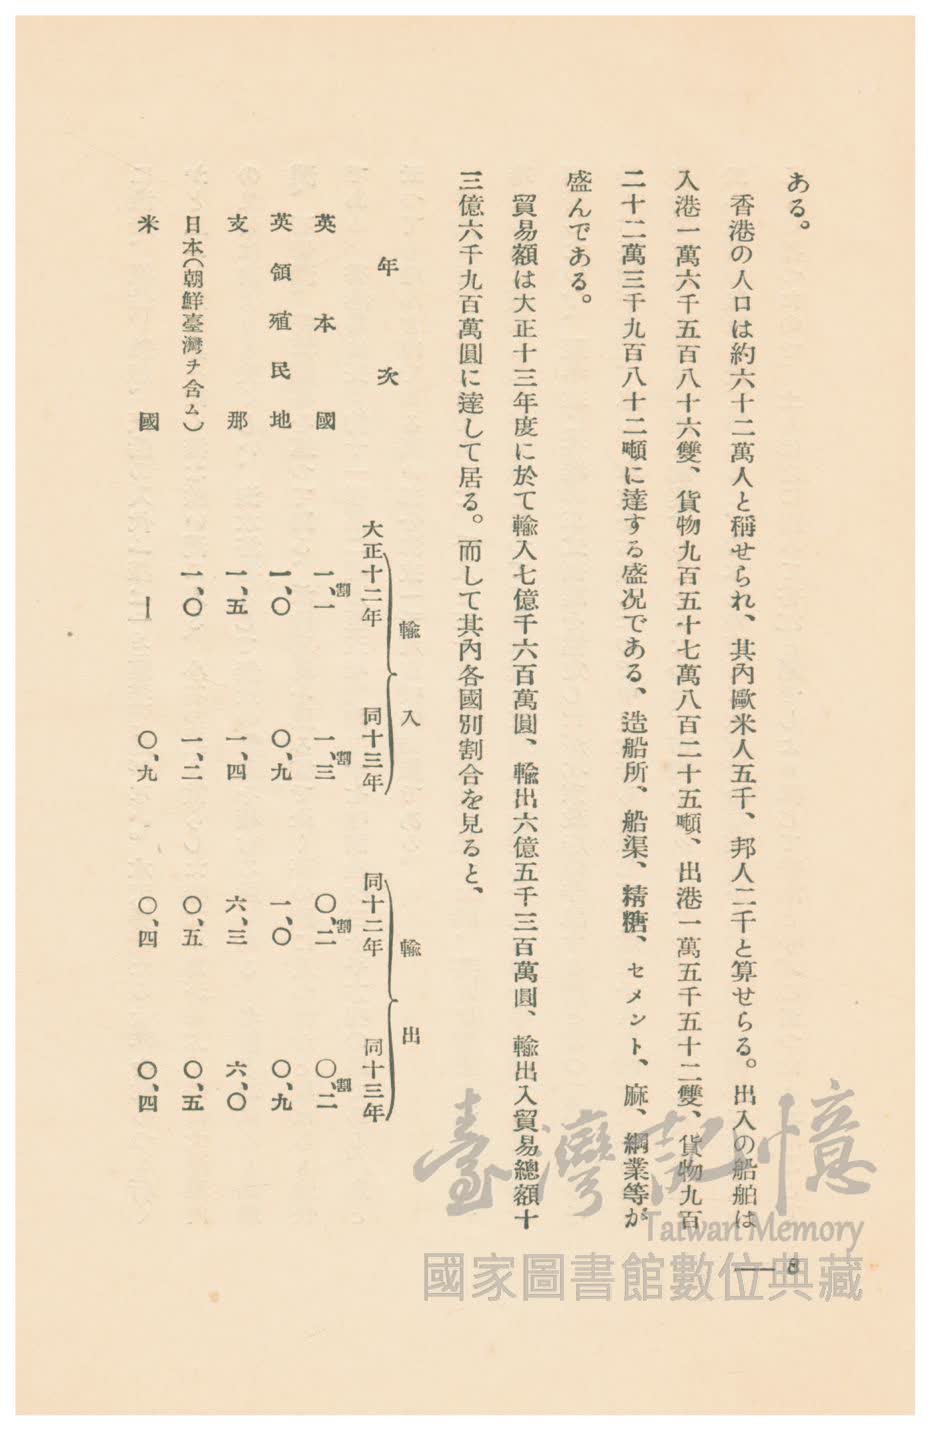 ある。
香港の人口は約六十二萬人と稱せられ、其內歐米人五千、邦人二千と算せらる。出入の船舶は
入港一萬六千五百八十六雙、貨物九百五十七萬八百二十五噸、出港一萬五千五十二雙、貨物九百
二十二萬三千九百八十二噸に達する盛況である、造船所、船渠、精糖、セメント、麻、綱業等が
盛んである。
貿易額は大正十三年度に於て輸入七億千六百萬圓、輸出六億五千三百萬圓、輸出入貿易總額十
三億六千九百萬圓に達して居る。而して其內各國別割合を見ると、
輸入 輸出
年次 大正十二年 同十三年 同十二年 同十三年
英本國 一、一割 一、三割 〇、二割 〇、二割
英領殖民地 一、〇 〇、九 一、〇 〇、九
支那 一、五 一、四 六、三 六、〇
日本(朝鮮臺灣チ含ム) 一、〇 一、二 〇、五 〇、五
米國 — 〇、九 〇、四 〇、四
— 8
臺灣記憶
Taiwan Memory
國家圖書館數位典藏